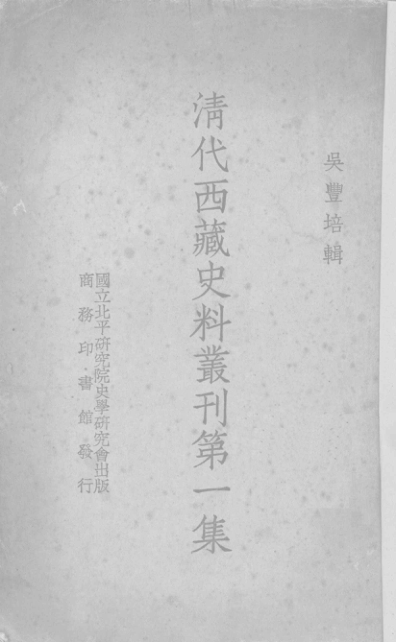 吳豐培輯
清代西藏史料叢刊第一集
國立北平研究院史學研究會出版
商務印書館發行